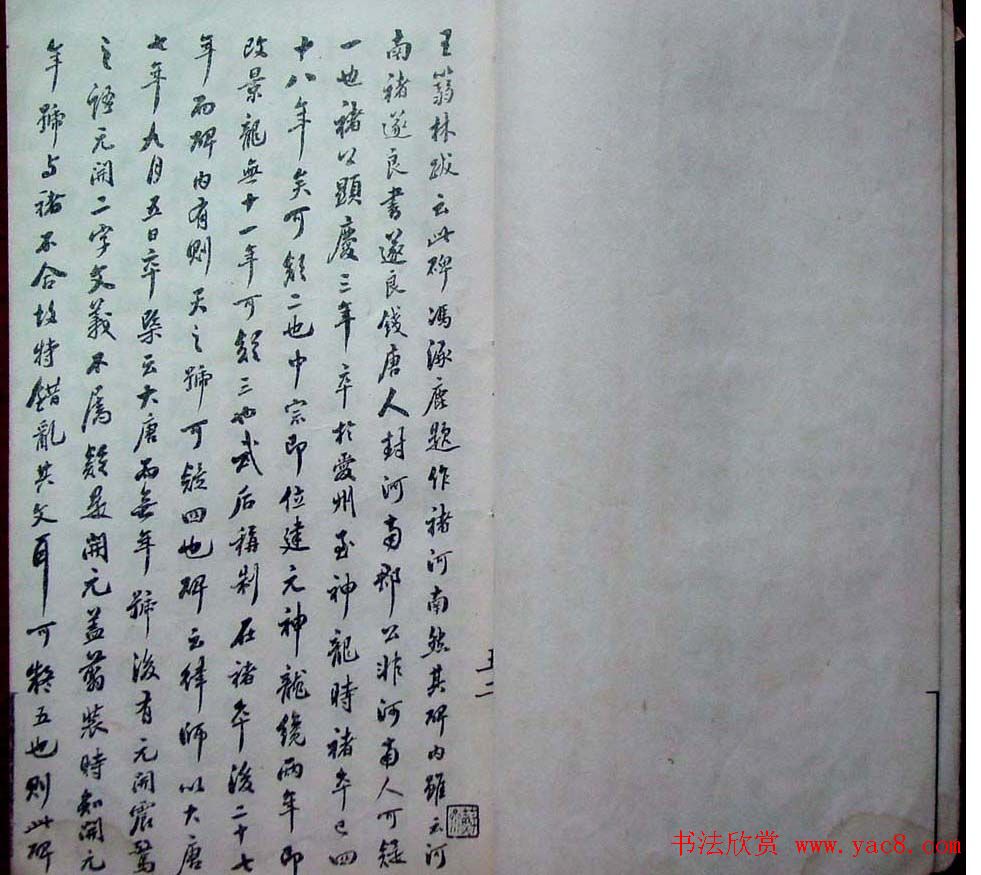 王蒻林跋云此碑馮涿鹿題作褚河南然其碑内雖云河
南褚遂良書遂良錢唐人封河南郡公非河南人可疑
一也褚公顯慶三年卒於愛州至神龍時褚卒已四
十八年矣可疑二也中宗即位建元神龍纔兩年即
改景龍無十一年可疑三也武后稱制在褚卒後二十七
年而碑内有則天之號可疑四也碑云律師以大唐
七年九月五日卒槩云大唐而無年號後有元開震驚
之語元開二字文義不属疑是開元盖翦裝時知開元
年號与褚不合故特錯亂其文耳可疑五也則此碑
五二
书法欣赏 www.yac8.com